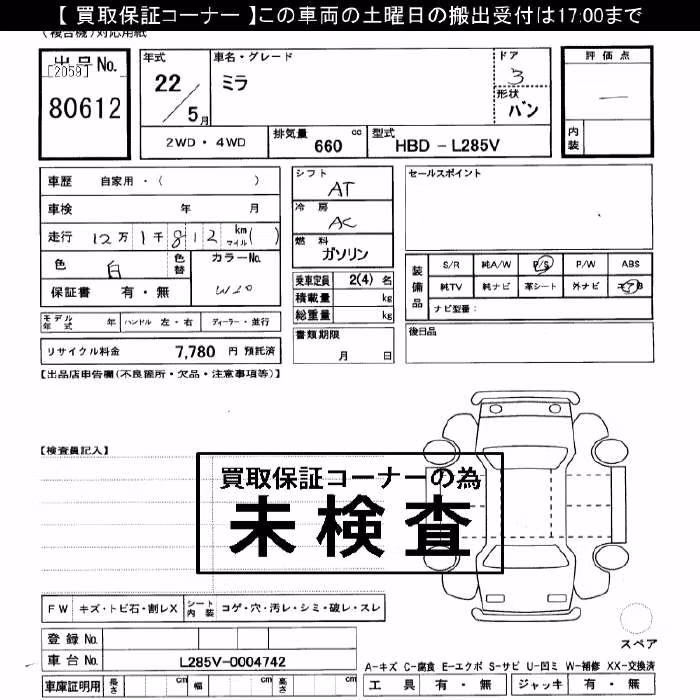 【 買取保証コーナー 】この車両の土曜日の搬出受付は17:00まで
(複合機)対応用紙
出品No.
[2059]
80612
年式
22/5月
車名・グレード
ミラ
ドア
3
形状
バン
評価点
—
内装
2WD・4WD
排気量
660 cc
型式
HBD - L285V
車歴 自家用・( )
車検 年 月
走行 12万1千812 km マイル( )
色 白
色替
カラーNo.
W20
保証書 有・無
モデル年式 年
ハンドル 左・右
ディーラー・並行
リサイクル料金 7,780 円 預託済
シフト
AT
冷房
AC
燃料
ガソリン
乗車定員 2(4) 名
積載量 kg
総重量 kg
書類期限
月 日
セールスポイント
装備品
S/R 純A/W P/S P/W ABS
純TV 純ナビ 革シート 外ナビ エアB
ナビ型番:
後日品
【出品店申告欄(不良箇所・欠品・注意事項等)】
【検査員記入】
買取保証コーナーの為
未検査
FW キズ・トビ石・割レX
シート内装 コゲ・穴・汚レ・シミ・破レ・スレ
登録 No.
車台 No. L285V-0004742
車庫証明用 長さ cm 幅 cm 高さ cm
スペア
A-キズ C-腐食 E-エクボ S-サビ U-凹ミ W-補修 XX-交換済
工具 有・無 ジャッキ 有・無